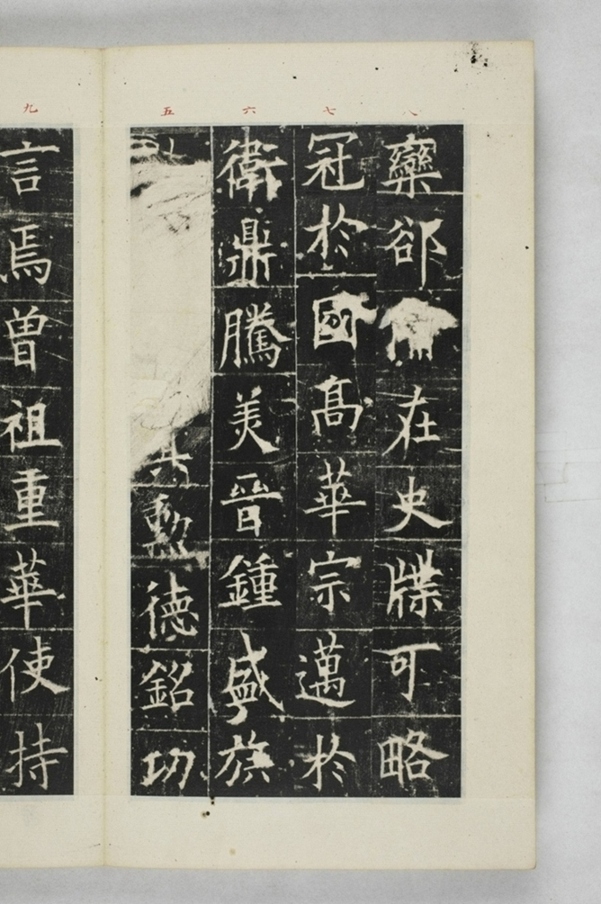 五
六
七
八
九
勲德銘功
衛鼎騰美晉鍾盛族
冠於國高華宗邁於
欒郤在史牒可略
言焉曾祖重華使持